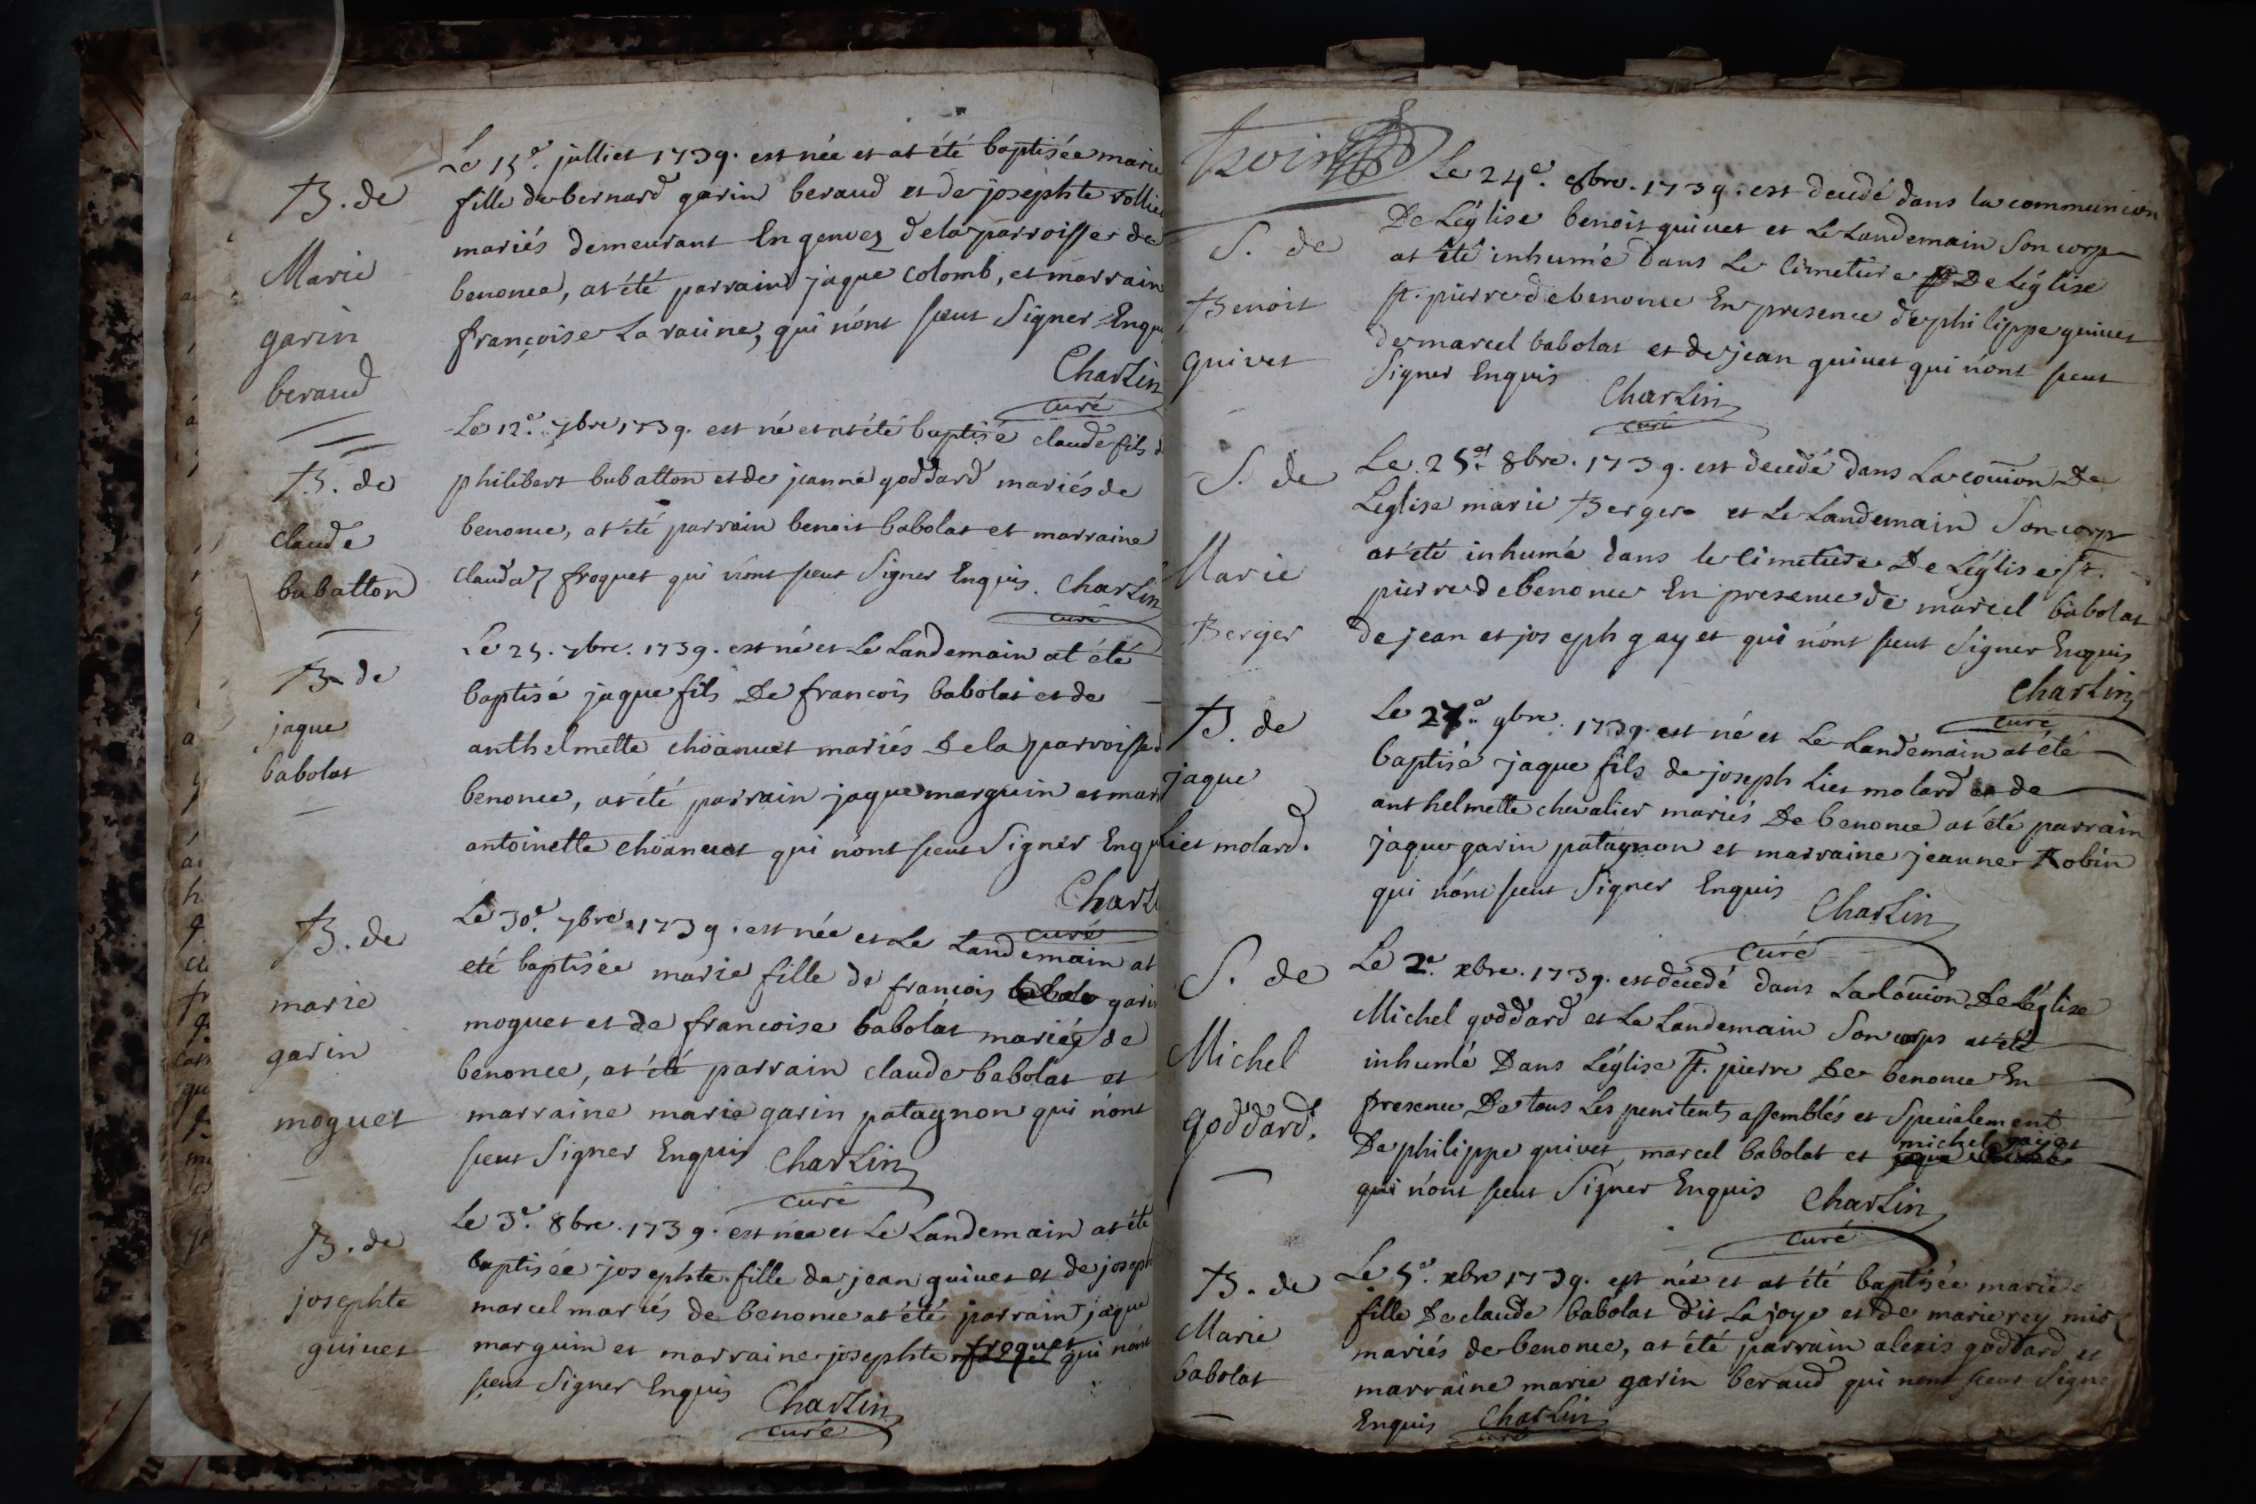 B. de
Marie
garin
beraud
Le 15e. julliet 1739. est née et at été baptisée marie
fille de bernard garin beraud et de josephte rollie
mariés demeurant En genvez de la parroisse de
benonce, at été parrain jaque colomb, et marrain
françoise La racine, qui n'ont sceut Signer Enqu
Charlin
curé
B. de
claude
babatton
Le 12e. 7bre 1739. est né et at été baptisé claude fils d
philibert babatton et de jeanne goddard mariés de
benonce, at été parrain benoit babolat et marraine
clauda froquet qui n'ont sceut Signer Enquis. Charlin
curé
B. de
jaque
babolat
Le 25. 7bre. 1739. est né et Le Landemain at été
baptisé jaque fils De francois babolat et de
anthelmette choanuet mariés De la parroisse d
benonce, at été parrain jaque marguin et marr
antoinette choanuet qui n'ont sceut Signer Enqu
Charl
curé
B. de
marie
garin
moguet
Le 30e. 7bre. 1739. est née et Le Landemain at
eté baptisée marie fille de francois garin
moguet et de francoise babolat mariés de
benonce, at été parrain claude babolat et
marraine marie garin patagnon qui n'ont
sceut Signer Enquis Charlin
curé
B. de
josephte
guivet
Le 3e. 8bre. 1739. est née et Le Landemain at été
baptisée josephte fille de jean guivet et de joseph
marcel mariés de benonce at été parrain jaque
marguin et marraine josephte froquet qui n'ont
sceut Signer Enquis Charlin
curé
S. de
Benoit
guivet
Le 24e. 8bre. 1739. est decedé dans la communion
De Léglise benoit guivet et Le Landemain Son corp
at été inhumé dans Le Cimetiere De Léglise
st. pierre de benonce En presence de philippe guivet
de marcel babolat et de jean guivet qui n'ont sceut
Signer Enquis Charlin
curé
S. de
Marie
Berger
Le. 25e. 8bre. 1739. est decedé dans La coūion De
Leglise marie Berger et Le Landemain Son corp
at été inhumé dans le Cimetiere De Léglise st.
pierre de benonce En presence de marcel babolat
de jean et joseph gayet qui n'ont sceut Signer Enquis
Charlin
curé
B. de
jaque
Liet molard.
Le 27e. 9bre. 1739. est né et Le Landemain at été
baptisé jaque fils de joseph Liet molard et de
anthelmette chevalier mariés De benonce at été parrain
jaque garin patagnon et marraine jeanne Robin
qui n'ont sceut Signer Enquis Charlin
curé
S. de
Michel
goddard.
Le 2e. xbre. 1739. est decedé dans La Coūion De Léglise
Michel goddard et Le Landemain Son corps at été
inhumé Dans Léglise st. pierre De benonce En
presence De tous Les penitents assemblés et Specialement
De philippe guivet, marcel babolat et michel gayet
qui n'ont sceut Signer Enquis Charlin
curé
B. de
Marie
babolat
Le 5e. xbre 1739. est née et at été baptisée marie
fille De claude babolat dit La joye et de marie rey mis
mariés de benonce, at été parrain alexis goddard et
marraine marie garin beraud qui n'ont sceut Signe
Enquis Charlin
curé